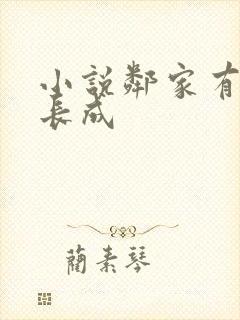 小說鄰家有
長成
蘭素琴